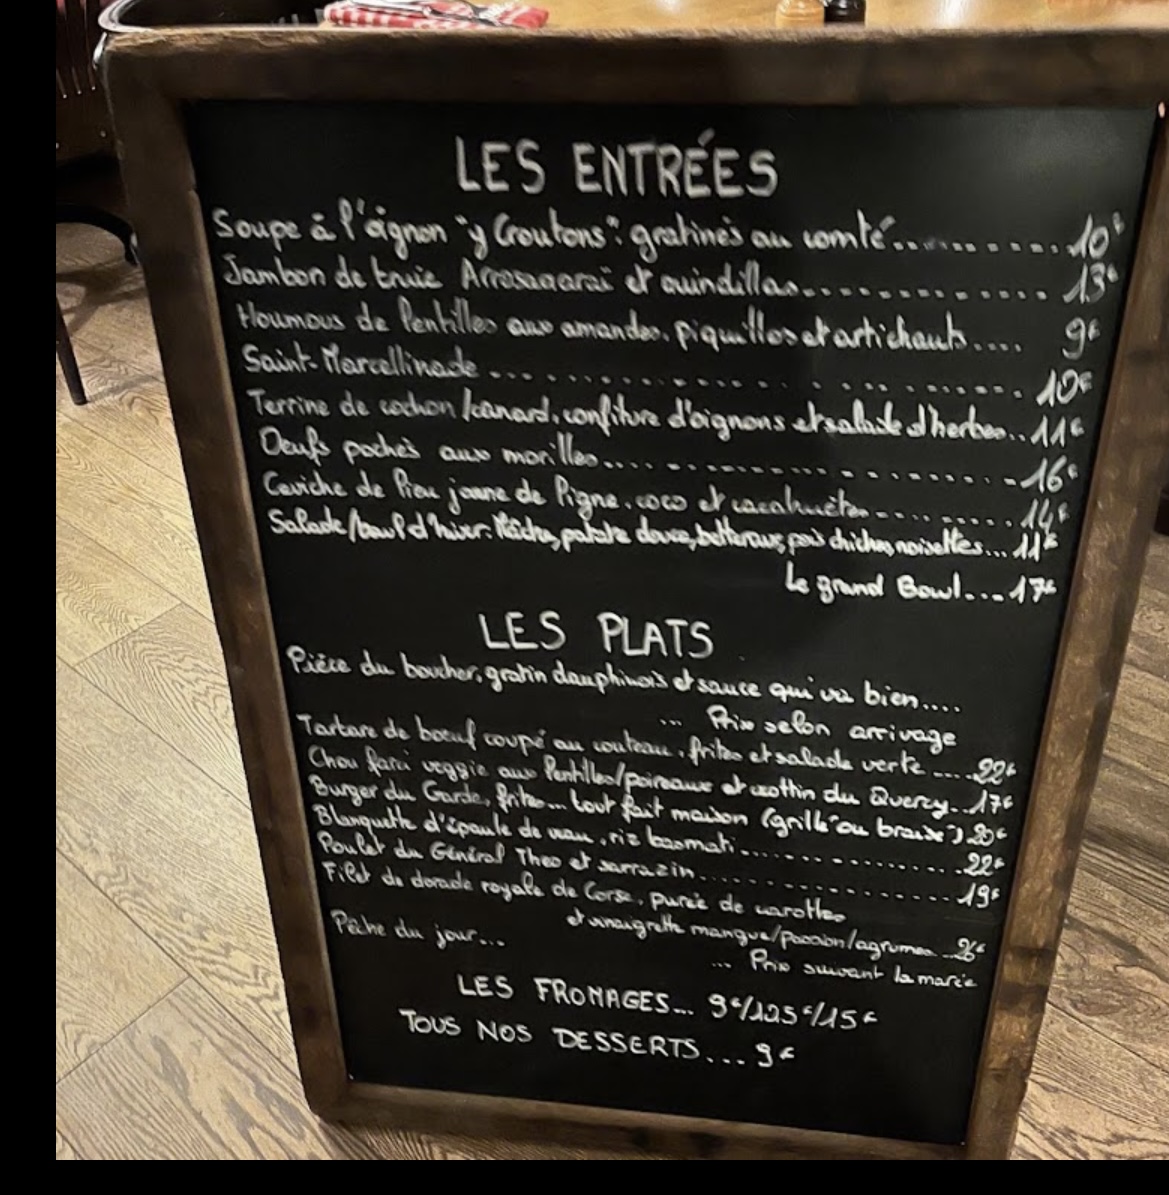 LES ENTRÉES
Soupe à l'oignon "y Croutons": gratinés au comté.......... 10€
Jambon de truie Arrosagarai et guindillas............ 13€
Houmous de lentilles aux amandes, piquillos et artichauts.... 9€
Saint-Marcellinade ......................... 10€
Terrine de cochon/canard, confiture d'oignons et salade d'herbes.. 11€
Oeufs pochés aux morilles.................. 16€
Ceviche de lieu jaune de ligne, coco et cacahuètes......... 14€
Salade/bowl d'hiver: Mâche, patate douce, betterave, pois chiches, noisettes... 11€
Le grand Bowl.... 17€
LES PLATS
Pièce du boucher, gratin dauphinois et sauce qui va bien....
... Prix selon arrivage
Tartare de boeuf coupé au couteau, frites et salade verte ....22€
Chou farci veggie aux lentilles/poireaux et crottin du Quercy..17€
Burger du Garde, frites... tout fait maison (grillé "ou braisé") 20€
Blanquette d'épaule de veau, riz basmati................22€
Poulet du Général Theo et sarrazin.................19€
Filet de dorade royale de Corse, purée de carottes
et vinaigrette mangue/passion/agrumes...26€
Pêche du jour...
... Prix suivant la marée
LES FROMAGES... 9€/12,5€/15€
TOUS NOS DESSERTS... 9€